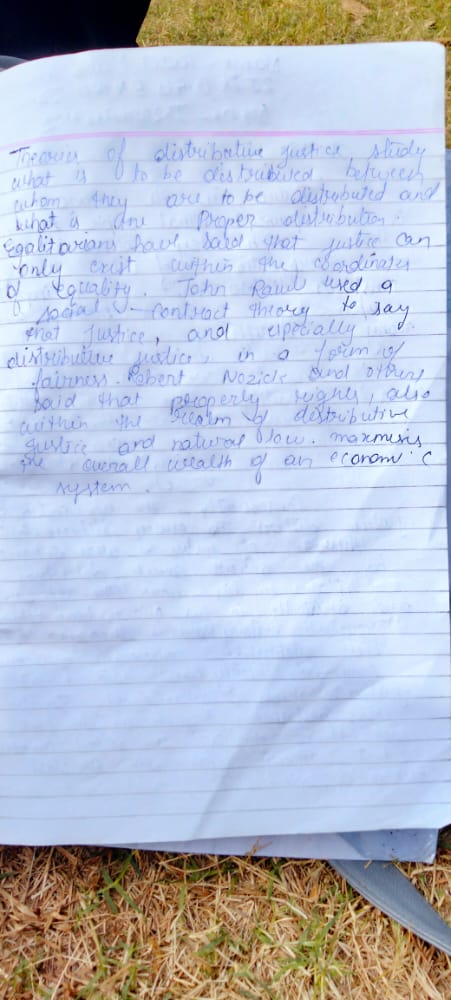 Theories of distributive justice study
what is to be distributed between
whom they are to be distributed and
what is the Proper distribution.
Egalitarians have said that justice can
only exist within the coordinates
of equality. John Rawl used a
social - contract theory to say
that Justice, and especially
distributive justice, in a form of
fairness. Robert Nozick and others
said that property rights, also
within the realm of distributive
justice and natural law. maxmisis
the overall wealth of an economic
system.